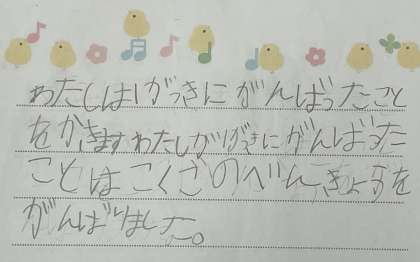 わたしは1がっきにがんばったこと
をかきますわたしが1がっきにがんばった
ことはこくごのべんきょうを
がんばりました。